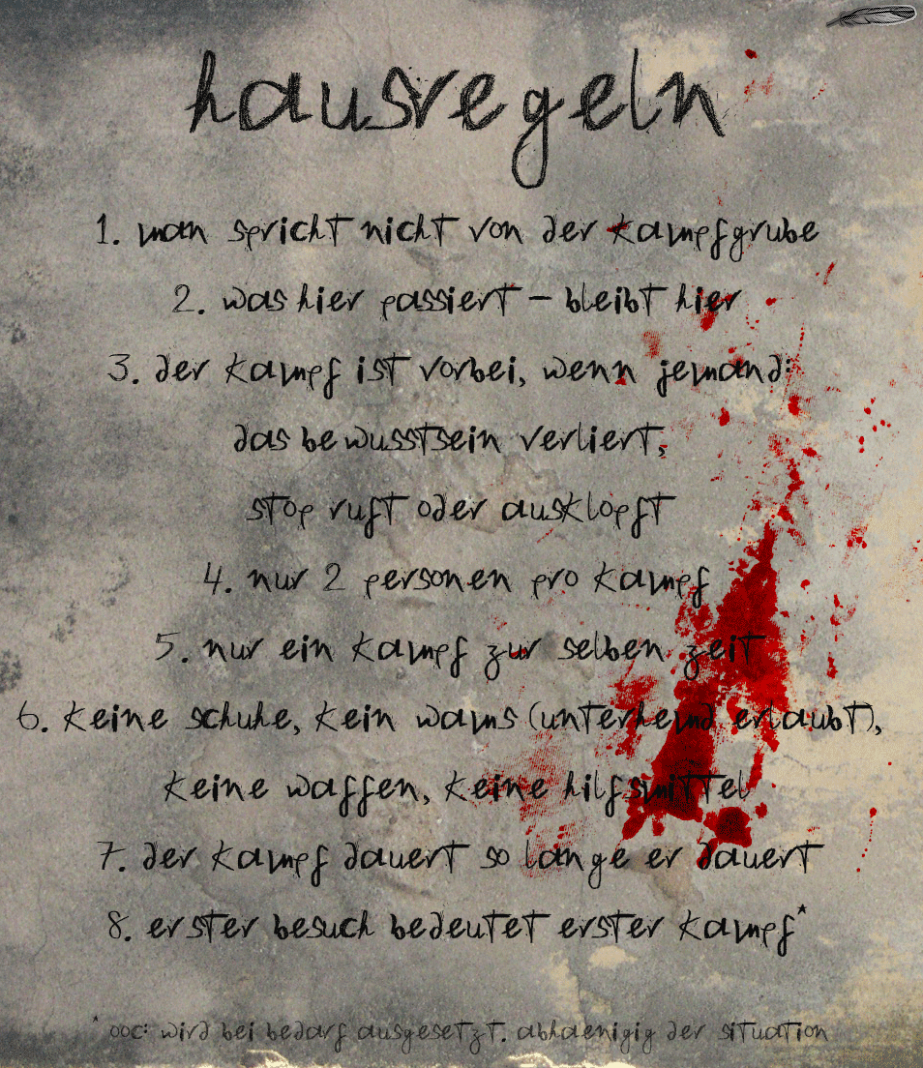 hausregeln
1. man spricht nicht von der kampfgrube
2. was hier passiert – bleibt hier
3. der kampf ist vorbei, wenn jemand:
das bewusstsein verliert,
stop ruft oder ausklopft
4. nur 2 personen pro kampf
5. nur ein kampf zur selben zeit
6. keine schuhe, kein wams (unterhemd erlaubt),
keine waffen, keine hilfsmittel
7. der kampf dauert so lange er dauert
8. erster besuch bedeutet erster kampf*
* ooc: wird bei bedarf ausgesetzt. abhaenigig der situation